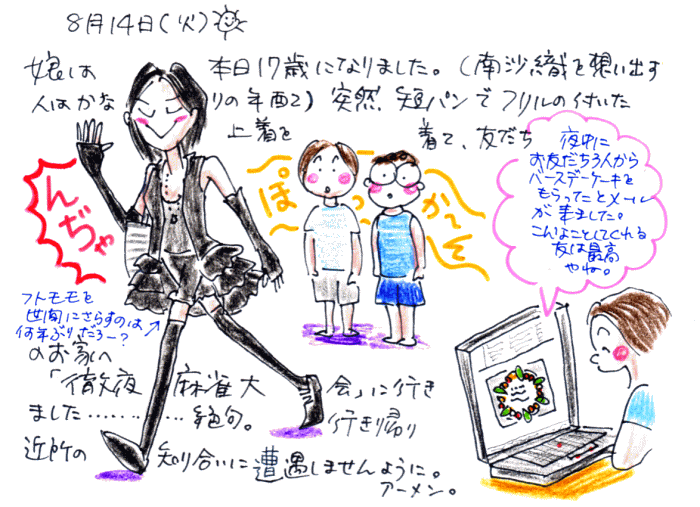 8月14日(火)
娘は 本日17歳になりました。(南沙織を想い出す
人はかなりの年配2) 突然、短パンでフリルの付いた
上着を着て、友だち
のお家へ
「徹夜麻雀大会」に行き
ました…………絶句。 行き帰り
近所の知り合いに遭遇しませんように。
アーメン。
んぢゃ
ぽっ
か〜そ
フトモモを
世間にさらすのは
何年ぶりだろー?
夜中に
お友だち3人から
バースデーケーキを
もらってことメール
が来ました。
こんなことしてくれる
友は最高
やね。